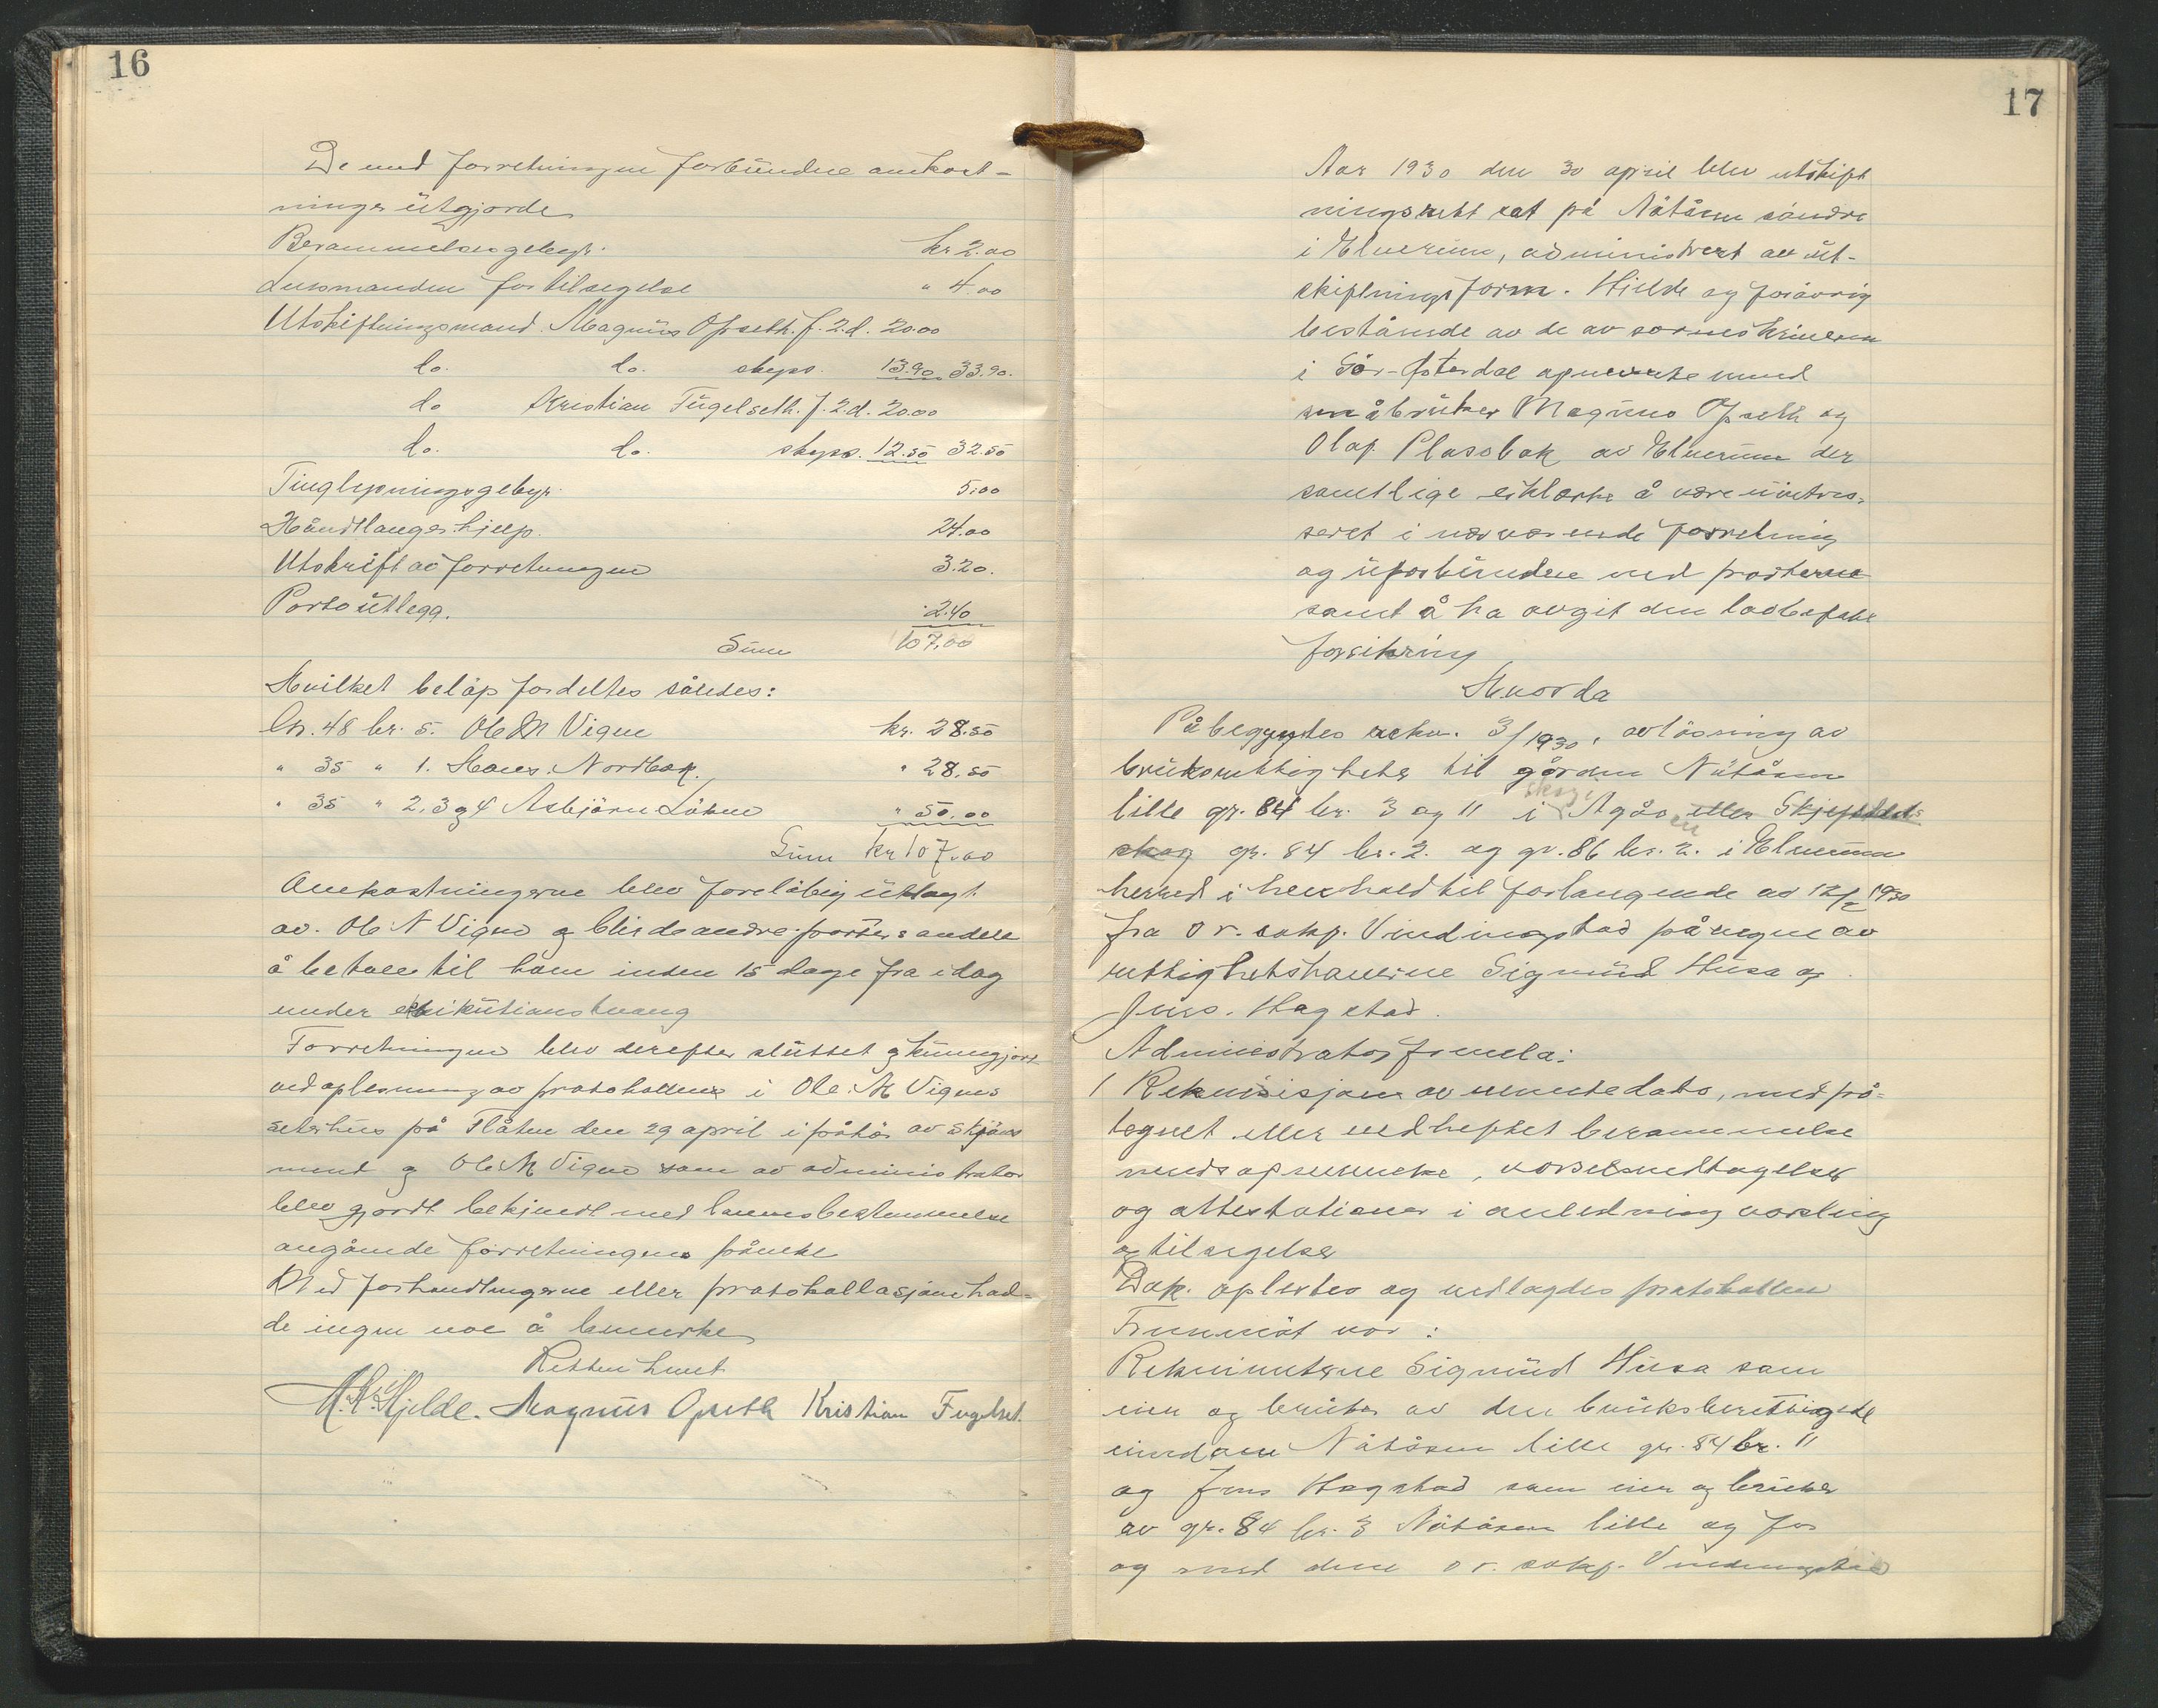 16
De med forretningen forbundne omkost-
ninger utgjorde
Berammelsesgebyr. kr 2.00
Lensmanden for tilsigelse " 4.00
Utskiftningsmand Magnus Opseth. f. 2. d. 20.00
do. do. skyss. 13.90 33.90.
do Kristian Fugelseth. f. 2. d. 20.00
do. do. skyss. 12.50 32.50
Tinglysningsgebyr. 5.00
Håndtlangerhjelp. 24.00
Utskrift av forretningen 3.20.
Porto utlegg. 2.40
Sum 107,00
Hvilket beløp fordeltes således:
Gr. 48 br. 5. Ole M Vigen kr. 28.50
" 35 " 1. Hans Nordbak. " 28.50
" 35 " 2, 3 og 4 Asbjørn Løken " 50.00
Sum kr 107.00
Omkostningerne blev foreløbig utlagt
av Ole M Vigen og blir de andre parters andele
å betale til ham inden 15 dage fra idag
under eksikutionstvang
Forretningen blev derefter sluttet og kunngjort
ved oplesning av protokollen i Ole M Vigens
seterhus på Flåten den 29 april i påhør av skjøns
menn og Ole M Vigen som av administrator
blev gjordt bekjendt med lovens bestemmelse
angående forretningens påanke
Med forhandlingerne eller protokollasjonen had-
de ingen noe å bemerke
Retten hevet
M. K. Hjelde. Magnus Opseth Kristian Fugelset.
17
Aar 1930 den 30 april blev utskift
ningsrett sat på Nåtåsen søndre
i Elverum, administrert av ut-
skiftningsform. Hjelde og forøvrig
bestående av de av sorenskriveren
i Sør-Østerdal opnevnte menn
småbruker Magnus Opseth og
Olaf Plassbak av Elverum der
samtlige erklærte å være uintres-
seret i nærværende forretning
og uforbundne med parterne
samt å ha avgit den lovbefalte
forsikring
Hvorda
Påbegyntes sak nr. 3/1930, avløsning av
bruksrettigheter til gården Nåtåsen
lille gr. 84 br. 3 og 11 i skogen Agås eller Skjefstad-
skog gr. 84 br. 2. og gr. 86 br. 2. i Elverum
herred i henhold til forlangende av 12/2 1930
fra o r. sakf. Vindingstad på vegne av
rettighetshaverne Sigmund Husa og
Jens Hagstad.
Administrator fremla:
1 Rekvisisjon av nevnte dato, med på-
tegnet eller vedheftet berammelse
mendsopnevnelse, varselsmedtagelser
og attestationer i anledning varsling
og tilsigelse
Dok. oplestes og vedlagdes protokollen
Fremmøt var:
Rekvirenterne Sigmund Husa som
eier og bruker av den bruksberettigede
eiendom Nåtåsen lille gr. 84 br. 11
og Jens Hagstad som eier og bruker
av gr. 84 br. 3 Nåtåsen lille og for
og med dem o r. sakf. Vindingstad